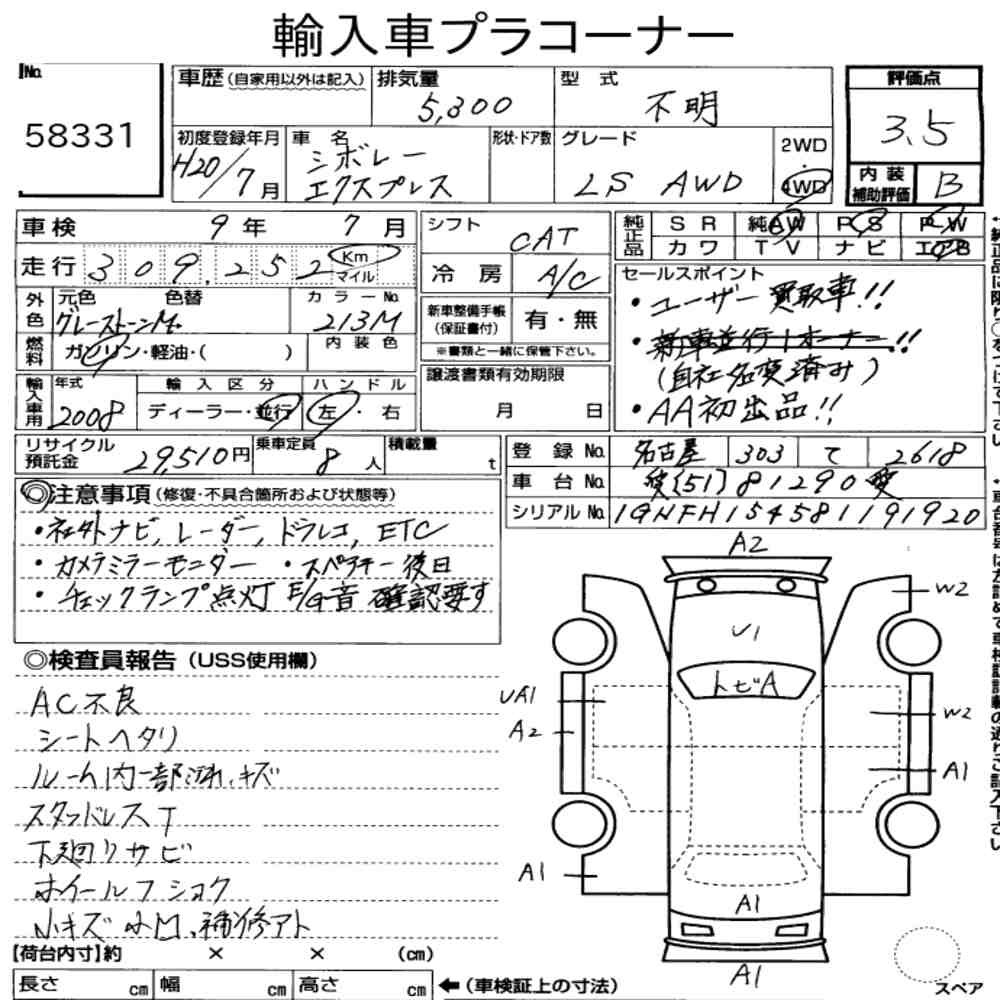 輸入車プラコーナー
No.
58331
車歴 (自家用以外は記入)
排気量
5,300
型 式
不明
評価点
3.5
初度登録年月
H20/7月
車 名
シボレー
エクスプレス
形状・ドア数
グレード
LS AWD
2WD
・
4WD
内 装
補助評価
B
車検 9年 7月
走行 309,252 Km
マイル
外色
元色 色替
グレーストーンM.
カラーNo.
213M
燃料
ガソリン・軽油・( )
内 装 色
輸入車用
年式
2008
輸 入 区 分
ディーラー・並行
ハ ン ド ル
左・右
シフト
CAT
冷 房
A/C
新車整備手帳
(保証書付)
有・無
※書類と一緒に保管下さい。
譲渡書類有効期限
月 日
純正品
S R 純AW P S P W
カ ワ T V ナ ビ エアB
セールスポイント
・ユーザー買取車!!
・新車並行1オーナー!!
(自社名変済み)
・AA初出品!!
リサイクル
預託金
29,510円
乗車定員
8人
積載量
t
登 録 No.
名古屋 303 て 2618
車 台 No.
愛[51]81290愛
シリアル No.
1GNFH154581191920
◎注意事項 (修復・不具合箇所および状態等)
・社外ナビ, レーダー, ドラレコ, ETC
・カメラミラーモニター ・スペアキー後日
・チェックランプ点灯 E/G音 確認要す
◎検査員報告 (USS使用欄)
AC不良
シートヘタリ
ルーム内一部汚れ、キズ
スタッドレスT
下廻りサビ
ホイールフショク
小キズ 小凹、補修アト
【荷台内寸】約 × × (cm)
長さ cm
幅 cm
高さ cm
←(車検証上の寸法)
A2
W2
U1
トビA
UA1
A2
W2
A1
A1
A1
A1
スペア